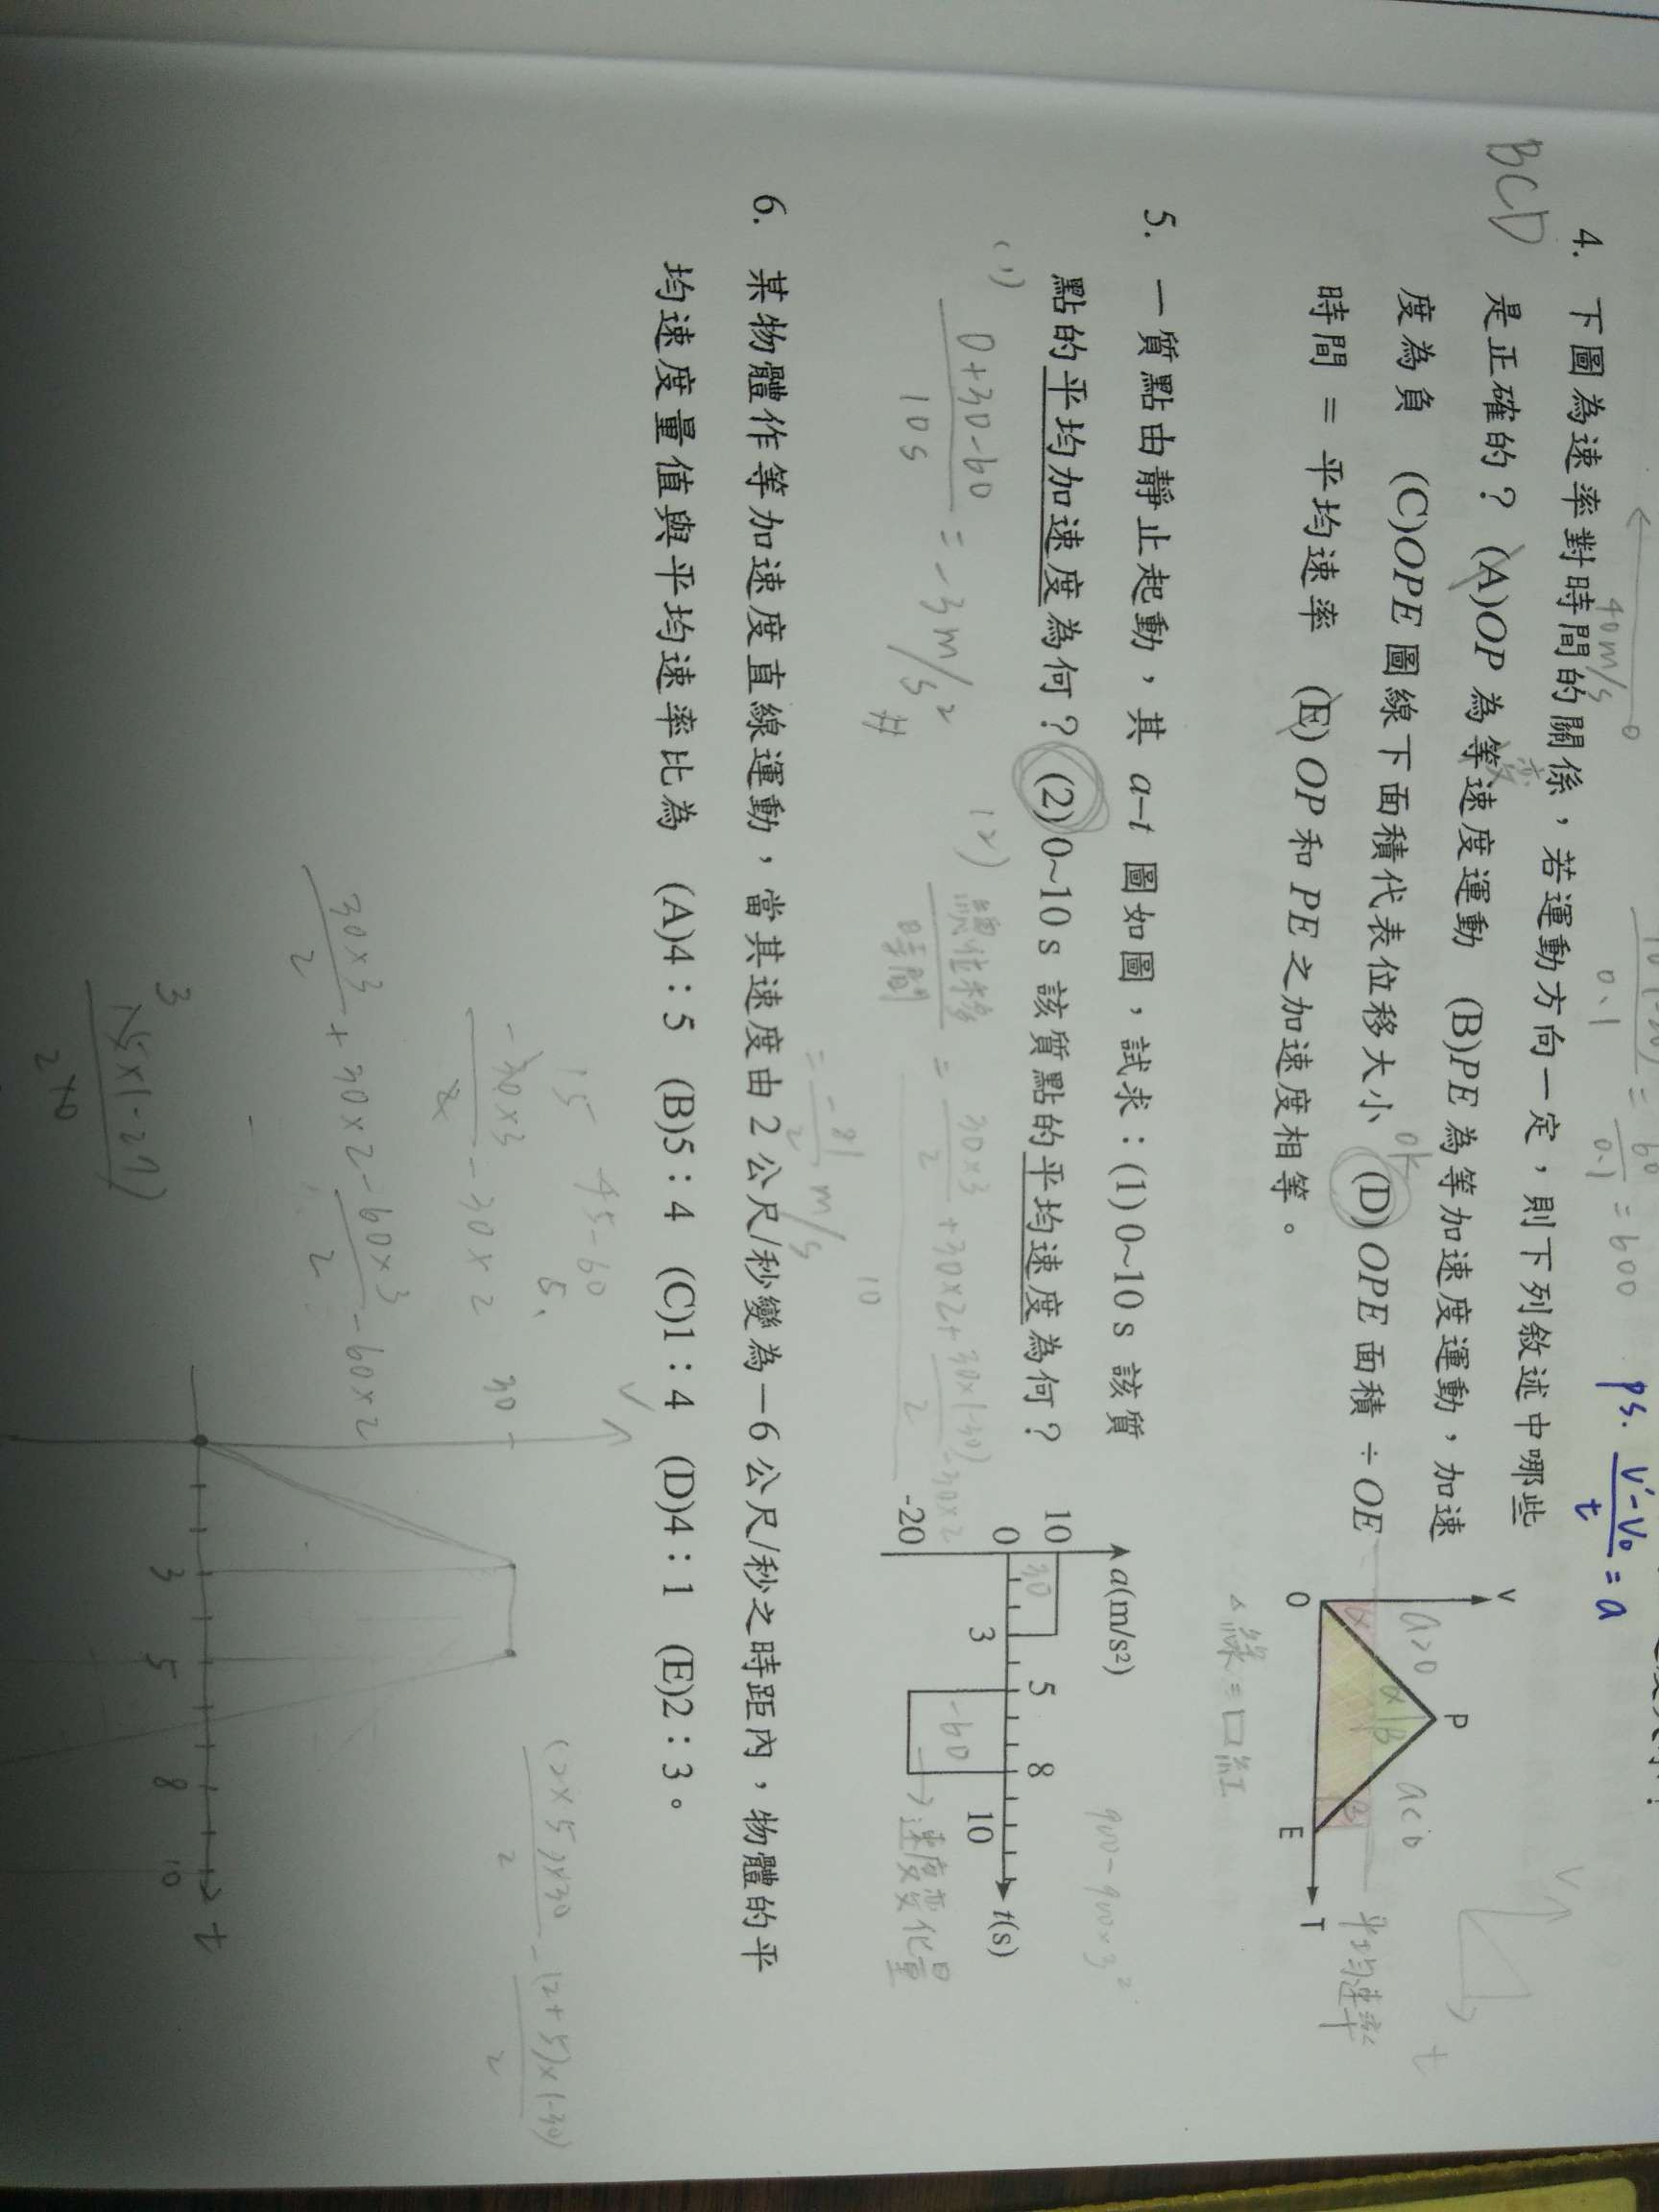 40m/s
0
10-(-20)
0.1
= 60
0.1
= 600
ps. v'-v₀
t
= a
BCD
4. 下圖為速率對時間的關係，若運動方向一定，則下列敘述中哪些
是正確的？ (A)OP 為等速度運動 (B)PE 為等加速度運動，加速
度為負 (C)OPE 圖線下面積代表位移大小 (D)OPE 面積 ÷ OE
時間 = 平均速率 (E) OP 和 PE 之加速度相等。
變
ok
V
t
V
a>0
a<0
P
α
α
B
B
O
E
T
平均速率
△綠=口紅
5. 一質點由靜止起動，其 a–t 圖如圖，試求：(1) 0~10 s 該質
點的平均加速度為何？ (2) 0~10 s 該質點的平均速度為何？
a(m/s²)
10
0
-20
3
5
8
10
t(s)
30
-60
→速度變化量
900-900×3²
(1)
0+30-60
10s
= -3m/s² #
(2)
總位移
時間
= 30×3
2
+30×2+
30×(-30)
2
-30×2
10
= -81
2
m/s
6. 某物體作等加速度直線運動，當其速度由 2 公尺/秒變為－6 公尺/秒之時距內，物體的平
均速度量值與平均速率比為 (A)4：5 (B)5：4 (C)1：4 (D)4：1 (E)2：3。
15
45-60
-30×3
2
-30×2
30×3
2
+30×2-
60×3
2
-60×2
3
15×(-27)
2
V
30
3
5
8
10
t
(2×5)×30
2
-(2+5)×(-30)
2